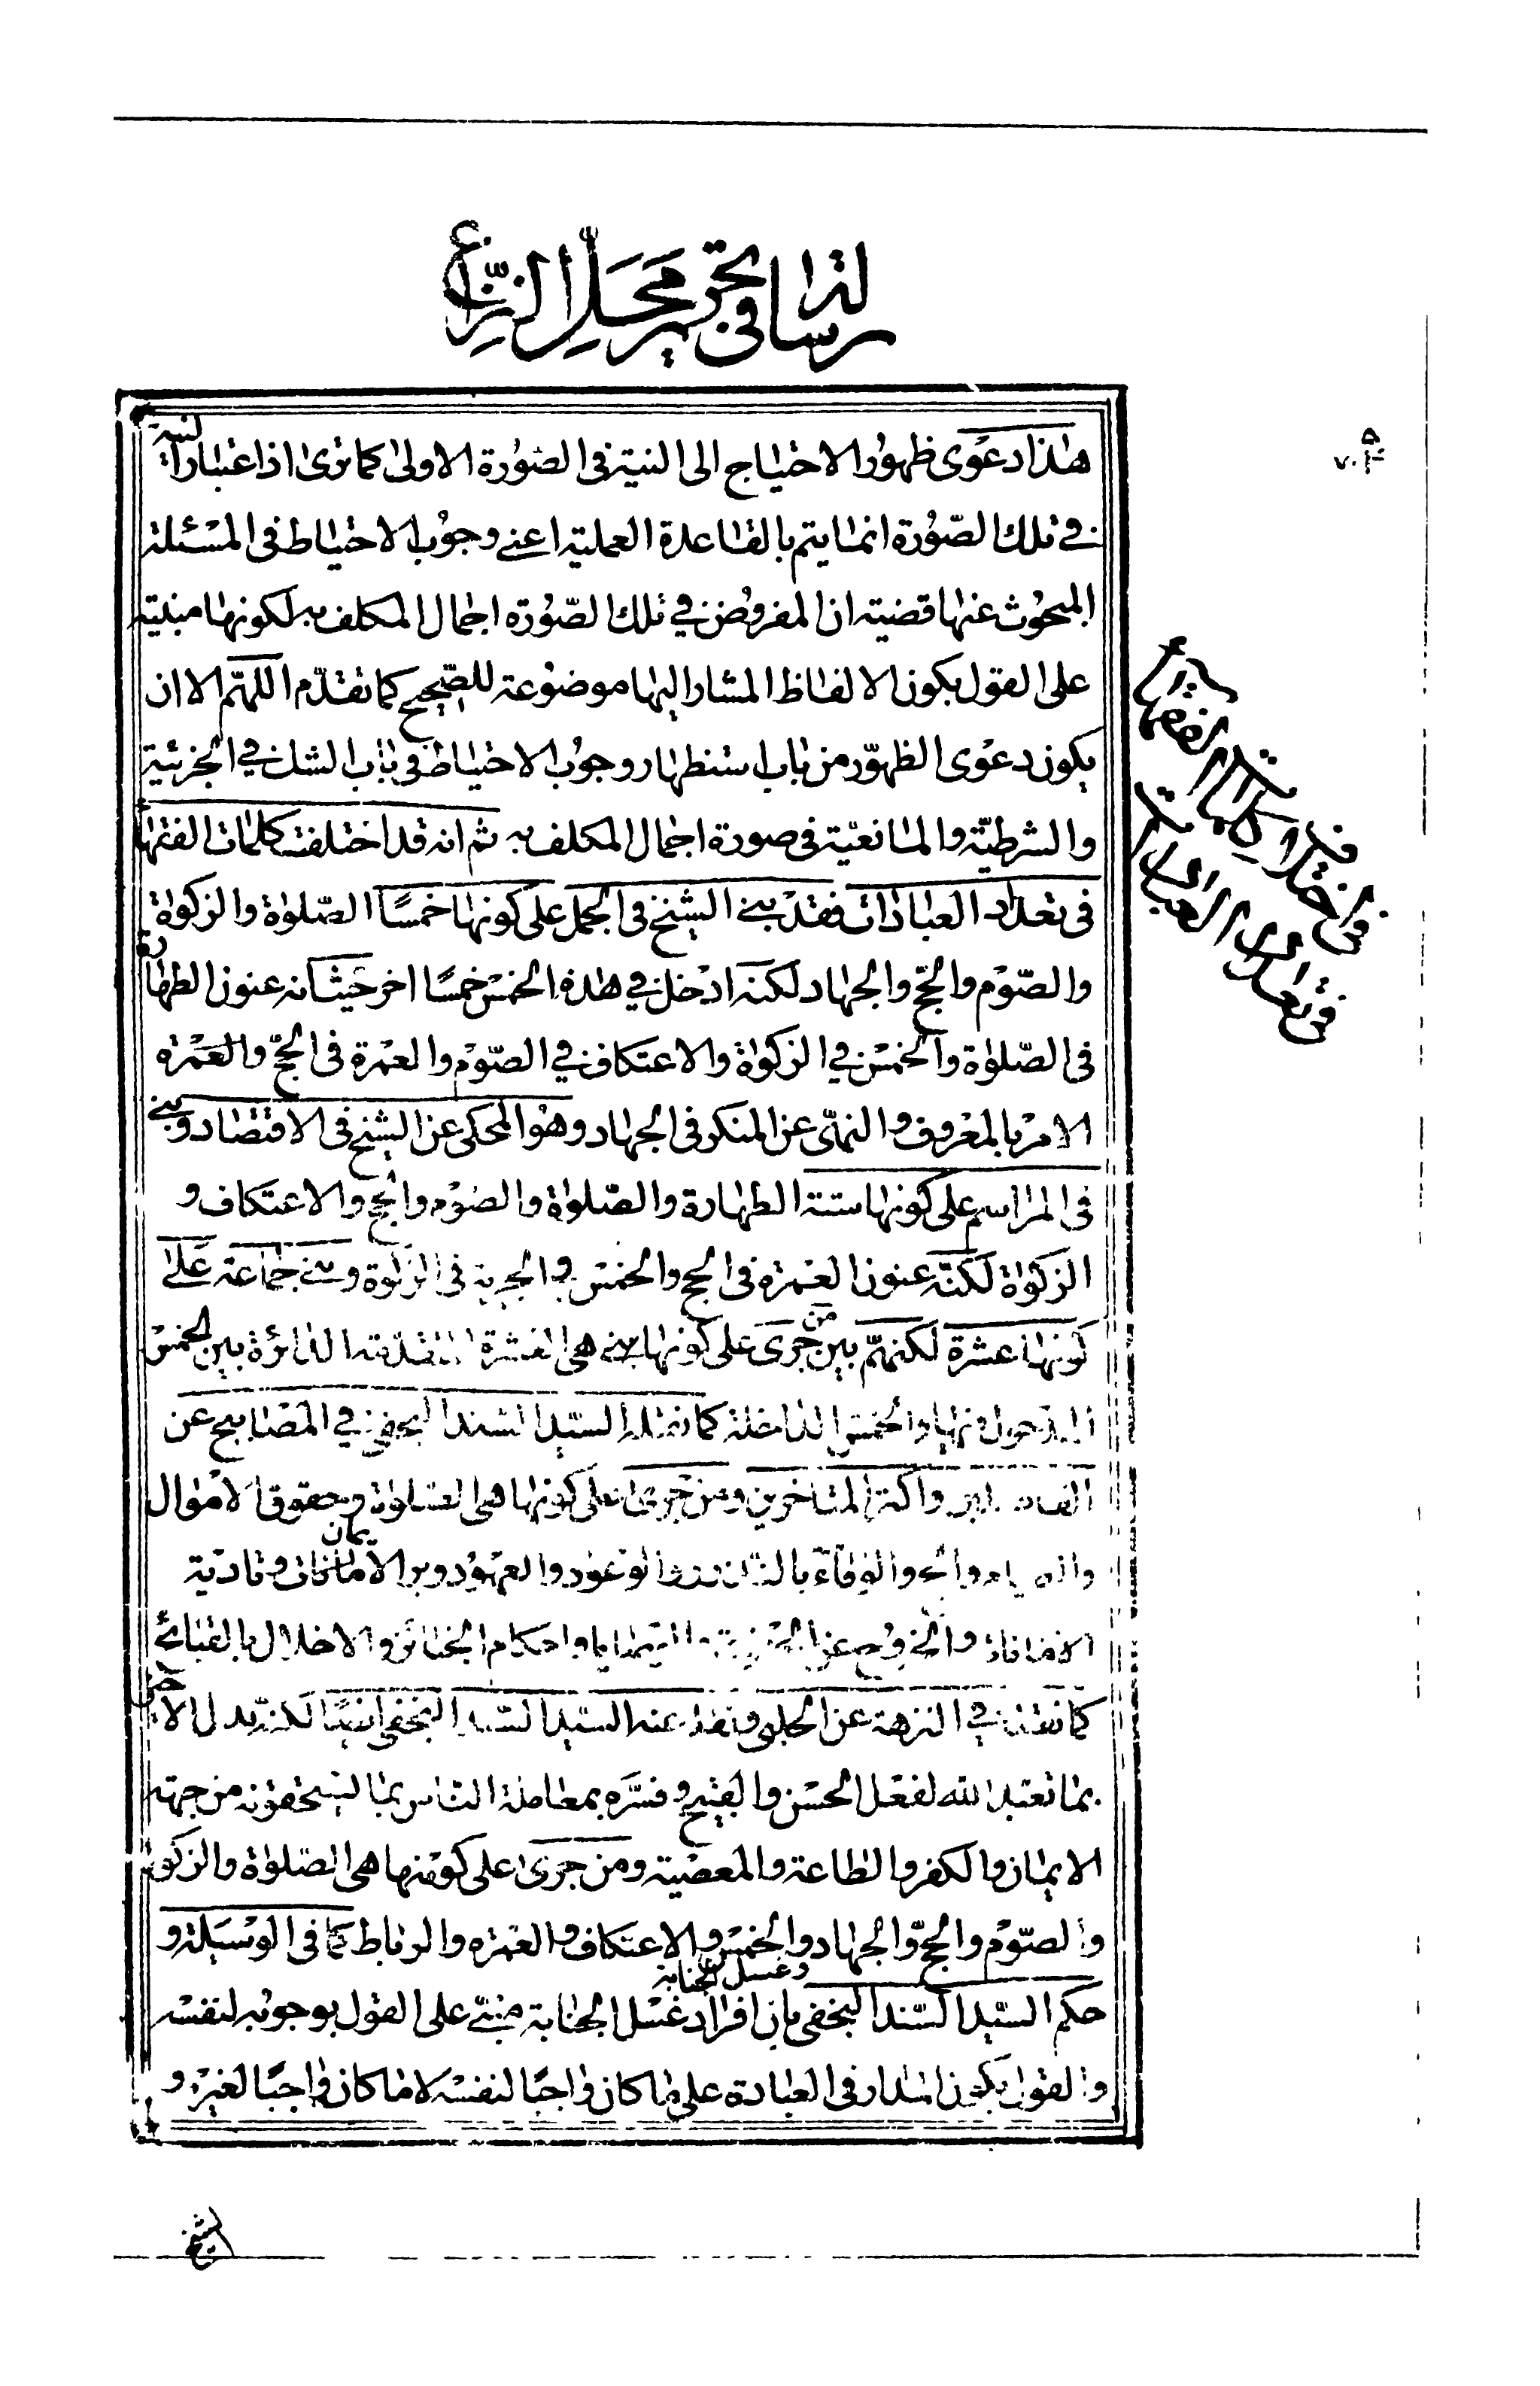 رسالة في تحرير محل النزاع
هذا دعوى ظهور الاحتياج الى النية في الصورة الاولى كما ترى اذ اعتبار النية
في تلك الصورة انما يتم بالقاعدة العملية اعني وجوب الاحتياط في المسئلة
المبحوث عنها قضية ان المفروض في تلك الصورة اجمال المكلف به لكونها مبنية
على القول بكون الالفاظ المشار اليها موضوعة للصحيح كما تقدم اللهم الا ان
يكون دعوى الظهور من باب استظهار وجوب الاحتياط في باب الشك في الجزئية
والشرطية والمانعية في صورة اجمال المكلف به ثم انه قد اختلفت كلمات الفقهاء
في تعداد العبادات فقد بنى الشيخ في الجمل على كونها خمسًا الصلوة والزكوة
والصوم والحج والجهاد لكنه ادخل في هذه الخمس خمسًا اخر حيث انه عنون الطهارة
في الصلوة والخمس في الزكوة والاعتكاف في الصوم والعمرة في الحج والعمرة
الامر بالمعروف والنهى عن المنكر في الجهاد وهو المحكى عن الشيخ في الاقتصاد وبنى
في المراسم على كونها ستة الطهارة والصلوة والصوم والحج والاعتكاف و
الزكوة لكنه عنون العمرة في الحج والخمس والجزية في الزكوة وبنى جماعة على
كونها عشرة لكنهم بين من جرى على كونها هى العشرة المتقدمة الدائرة بين الخمس
المدخول فيها والخمس الداخلة كما نقله السيد السند النجفى في المصابيح عن
واكثر المتاخرين ومن جرى على كونها هى الصلوة وحقوق الاموال
والصيام والحج والوفاء بالنذر والوعود والعهود وبر الايمان وتادية
الامانات والخروج عن الحقوق والوصايا واحكام الجنائز والاخلال بالقبائح
كما نقله في النزهة عن الحلبى ونقله عنه السيد السند النجفى ايضًا لكنه بدل الاخير
بما تعبد الله لفعل الحسن والقبيح وفسره بمعاملة الناس بما يستحقونه من جهة
الايمان والكفر والطاعة والمعصية ومن جرى على كونها هى الصلوة والزكوة
والصوم والحج والجهاد والخمس والاعتكاف والعمرة والرباط كما في الوسيلة و
وغسل الجنابة
حكم السيد السند النجفى بان افراد غسل الجنابة مبنى على القول بوجوبه لنفسه
والقول بكون المدار في العبادة على ما كان واجبًا لنفسه لا ما كان واجبًا لغيره و
الشيخ
في اختلاف كلمات الفقهاء
في تعداد العبادات